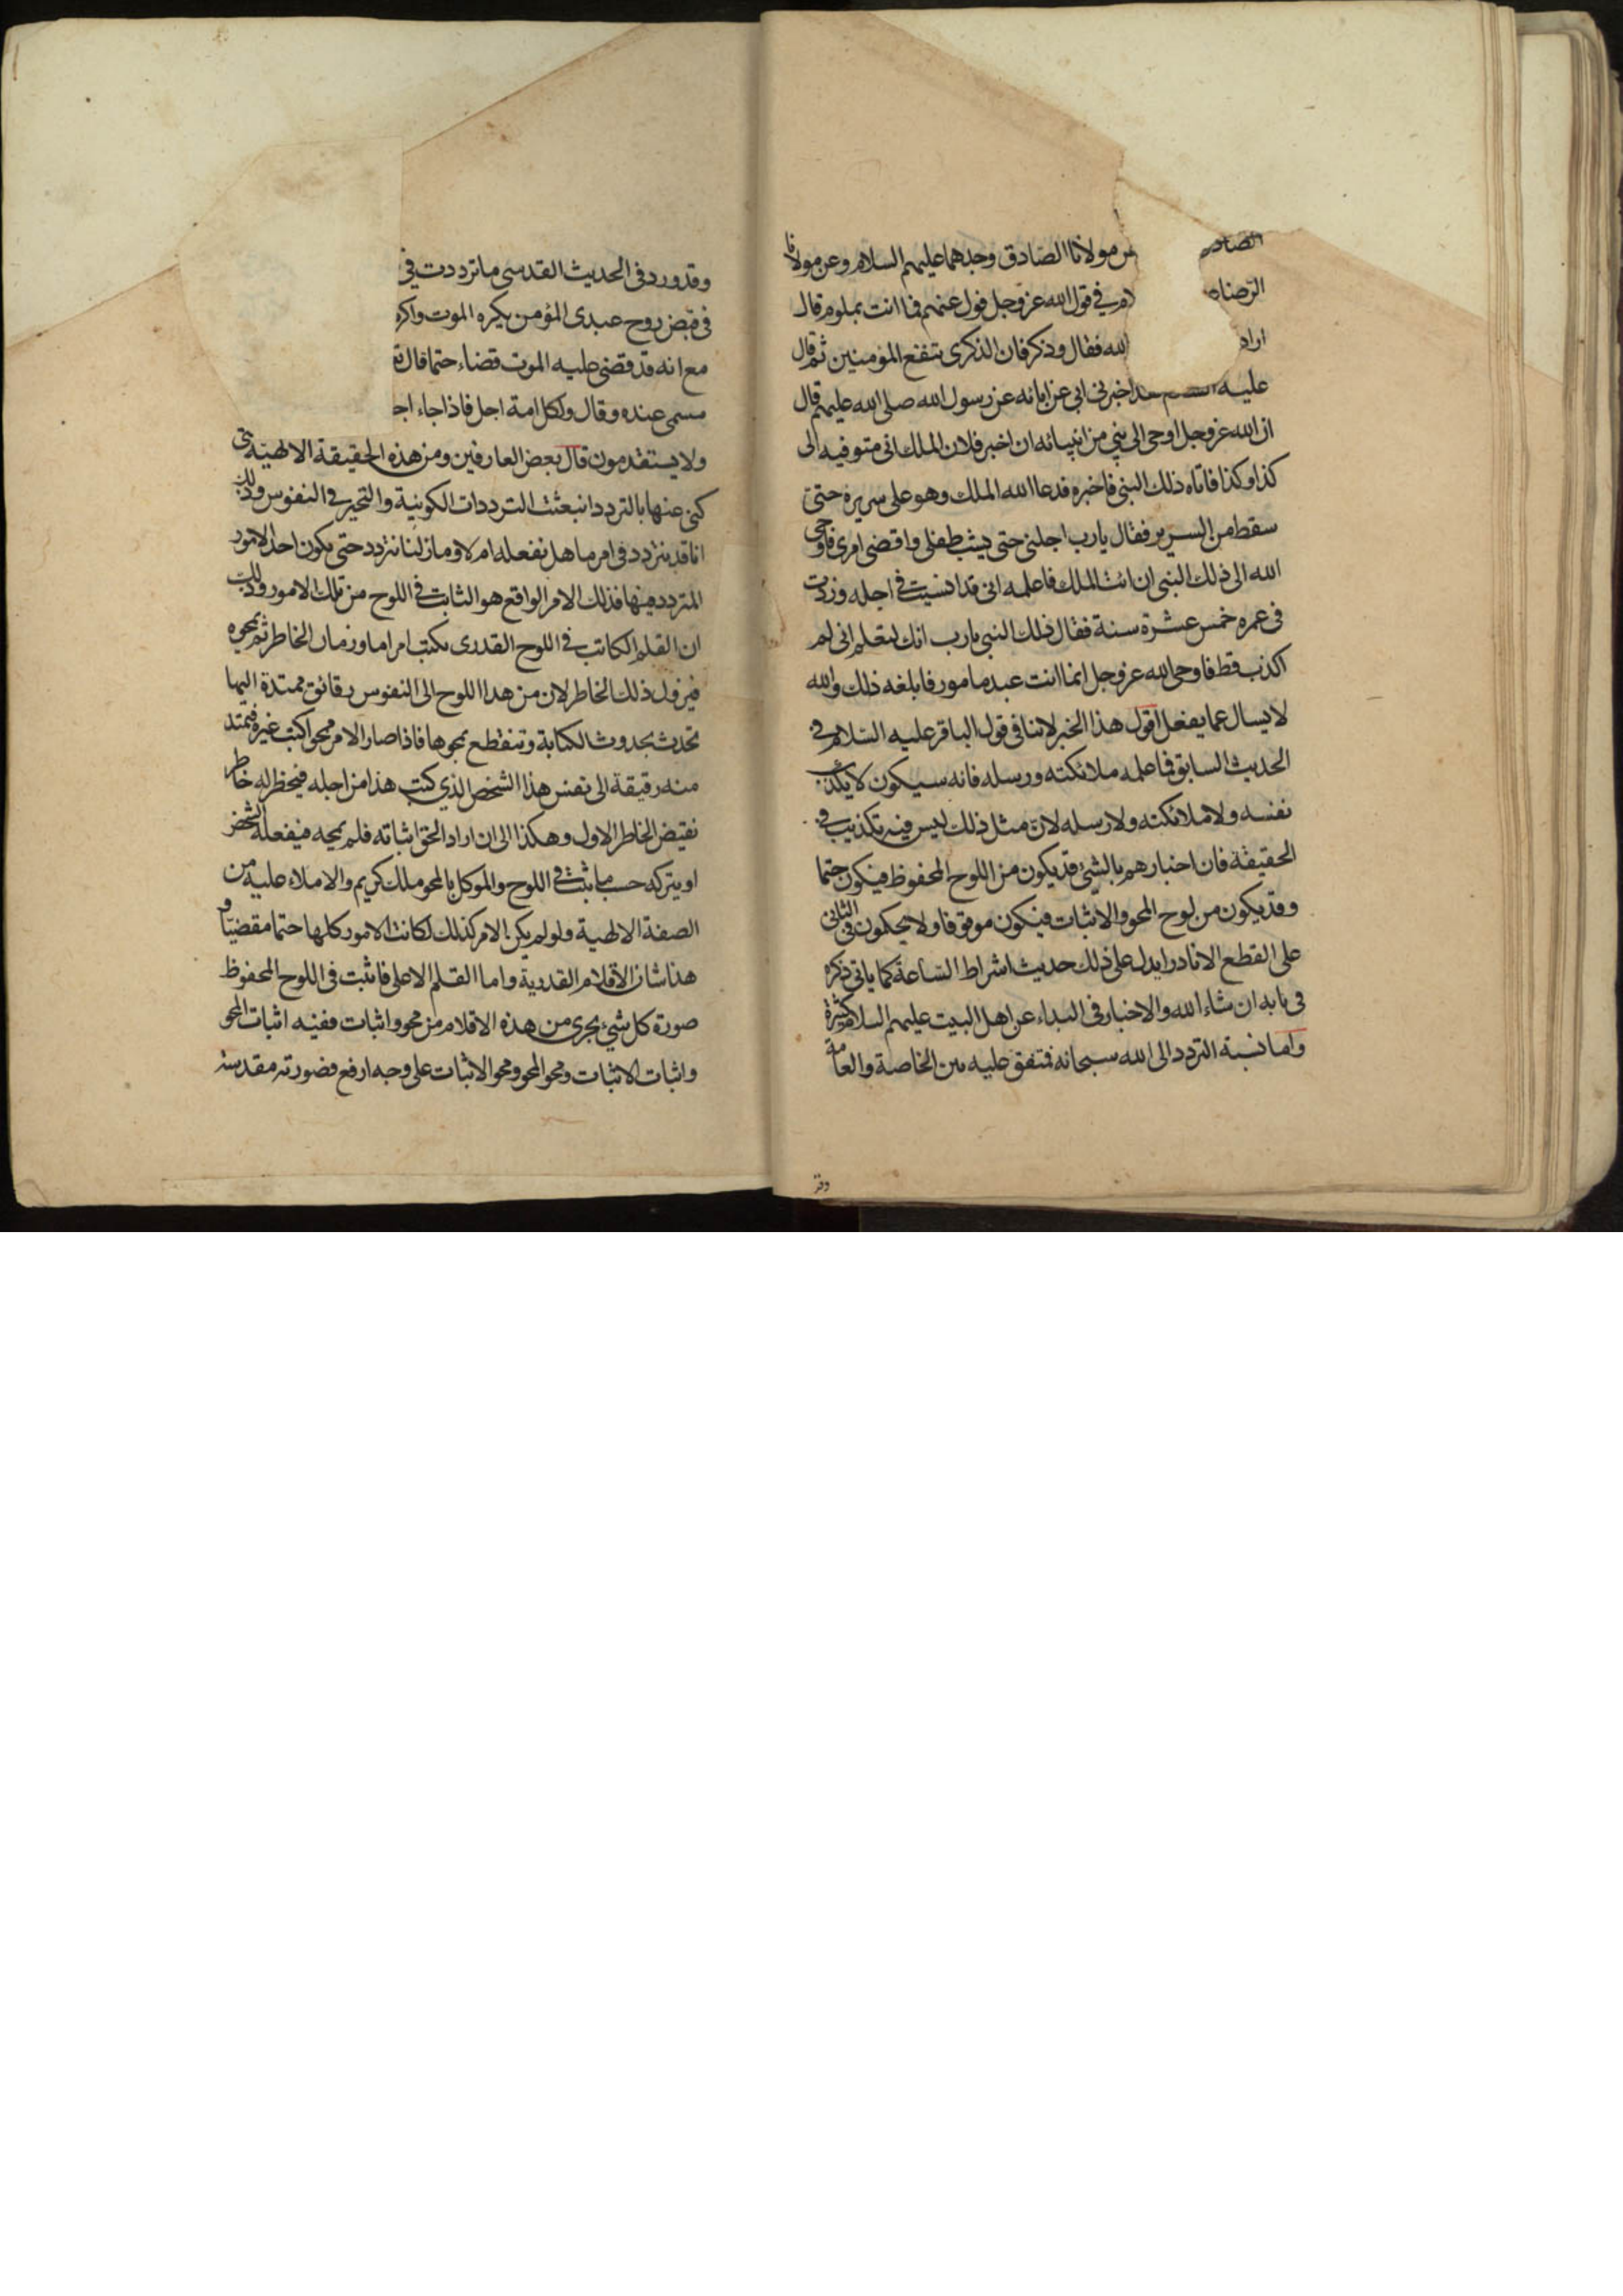 الصاد من مولانا الصادق وجدهما عليهم السلام وعن مولانا
الرضا لام في قول الله عز وجل فول عنهم فما انت بملوم قال
اراد الله فقال وذكر فان الذكرى تنفع المؤمنين ثم قال
عليه اخبرني ابي عن ابائه عن رسول الله صلى الله عليهم قال
ان الله عز وجل اوحى الى نبي من انبيائه ان اخبر فلان الملك اني متوفيه الى
كذا وكذا فاتاه ذلك النبي فاخبره فدعا الله الملك وهو على سريره حتى
سقط من السرير فقال يا رب اجلني حتى يشب طفلي واقضي امري فاوحى
الله الى ذلك النبي ان ائت الملك فاعلمه اني قد انسيت في اجله وزدت
في عمره خمس عشرة سنة فقال ذلك النبي يا رب انك لتعلم اني لم
اكذب قط فاوحى الله عز وجل انما انت عبد مامور فابلغه ذلك والله
لا يسال عما يفعل اقول هذا الخبر لا ينافي قول الباقر عليه السلام في
الحديث السابق فما علمه ملائكته ورسله فانه سيكون لا يكذب
نفسه ولا ملائكته ولا رسله لان مثل ذلك ليس فيه تكذيب في
الحقيقة فان اخبارهم بالشئ قد يكون من اللوح المحفوظ فيكون حتما
وقد يكون من لوح المحو والاثبات فيكون موقوفا ولا يحكمون في الثاني
على القطع الا نادرا يدل على ذلك حديث اشراط الساعة كما ياتي ذكره
في بابه ان شاء الله والاخبار في البداء عن اهل البيت عليهم السلام كثيرة
واما نسبة التردد الى الله سبحانه فمتفق عليه بين الخاصة والعامة
وقد
وقد ورد في الحديث القدسي ما ترددت في
في قبض روح عبدي المؤمن يكره الموت واكره
مع انه قد قضى عليه الموت قضاء حتما قال تع
مسمى عنده وقال ولكل امة اجل فاذا جاء اجـ
ولا يستقدمون قال بعض العارفين ومن هذه الحقيقة الالهية التي
كنى عنها بالتردد انبعثت الترددات الكونية والتحير في النفوس وذلك
انا قد نتردد في امر ما هل نفعله ام لا وما زلنا نتردد حتى يكون احد الامور
المتردد فيها فذلك الامر الواقع هو الثابت في اللوح من تلك الامور وذلك
ان القلم الكاتب في اللوح القدري يكتب امرا ما وزمان الخاطر ثم يمحوه
فيزول ذلك الخاطر لان من هذا اللوح الى النفوس رقائق ممتدة اليها
تحدث بحدوث الكتابة وتنقطع بمحوها فاذا صار الامر ممحوا كتب غيره فيمتد
منه رقيقة الى نفس هذا الشخص الذي كتب هذا من اجله فيخطر له خاطر
نقيض الخاطر الاول وهكذا الى ان اراد الحق اثباته فلم يمحه فيفعله الشخص
او يتركه حسب ما يثبت في اللوح والموكل بالمحو ملك كريم والاملاء عليه من
الصفة الالهية ولو لم يكن الامر كذلك لكانت الامور كلها حتما مقضيا و
هذا شان الاقلام القدرية واما القلم الاعلى فاثبت في اللوح المحفوظ
صورة كل شيء يجري من هذه الاقلام من محو واثبات ففيه اثبات المحو
واثبات الاثبات ومحو المحو ومحو الاثبات على وجه ارفع فصورته مقدسة